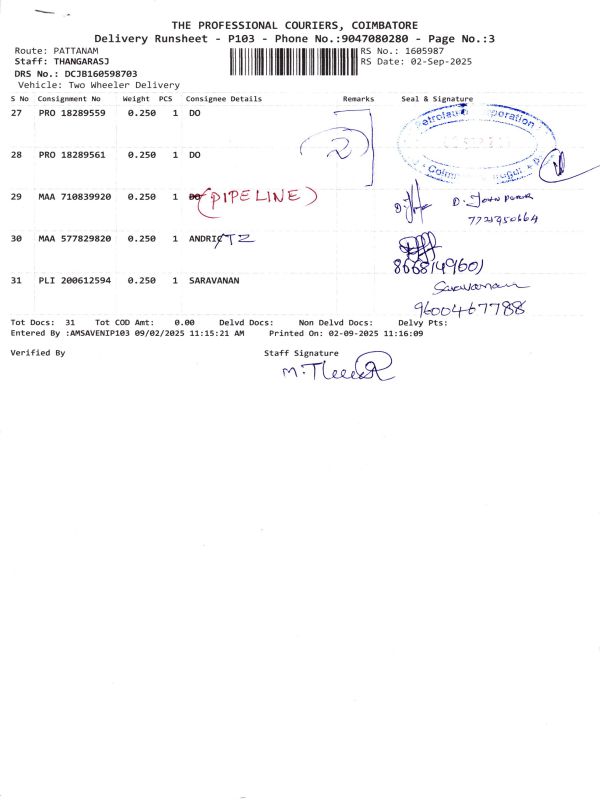 THE PROFESSIONAL COURIERS, COIMBATORE
Delivery Runsheet - P103 - Phone No.:9047080280 - Page No.:3
Route: PATTANAM RS No.: 1605987
Staff: THANGARASJ RS Date: 02-Sep-2025
DRS No.: DCJB160598703
Vehicle: Two Wheeler Delivery
S No Consignment No Weight PCS Consignee Details Remarks Seal & Signature
27 PRO 18289559 0.250 1 DO
2
28 PRO 18289561 0.250 1 DO
29 MAA 710839920 0.250 1 DO (PIPELINE)
30 MAA 577829820 0.250 1 ANDRITZ
8668149601
31 PLI 200612594 0.250 1 SARAVANAN Saravanan
9600467788
Tot Docs: 31 Tot COD Amt: 0.00 Delvd Docs: Non Delvd Docs: Delvy Pts:
Entered By :AMSAVENIP103 09/02/2025 11:15:21 AM Printed On: 02-09-2025 11:16:09
Verified By Staff Signature